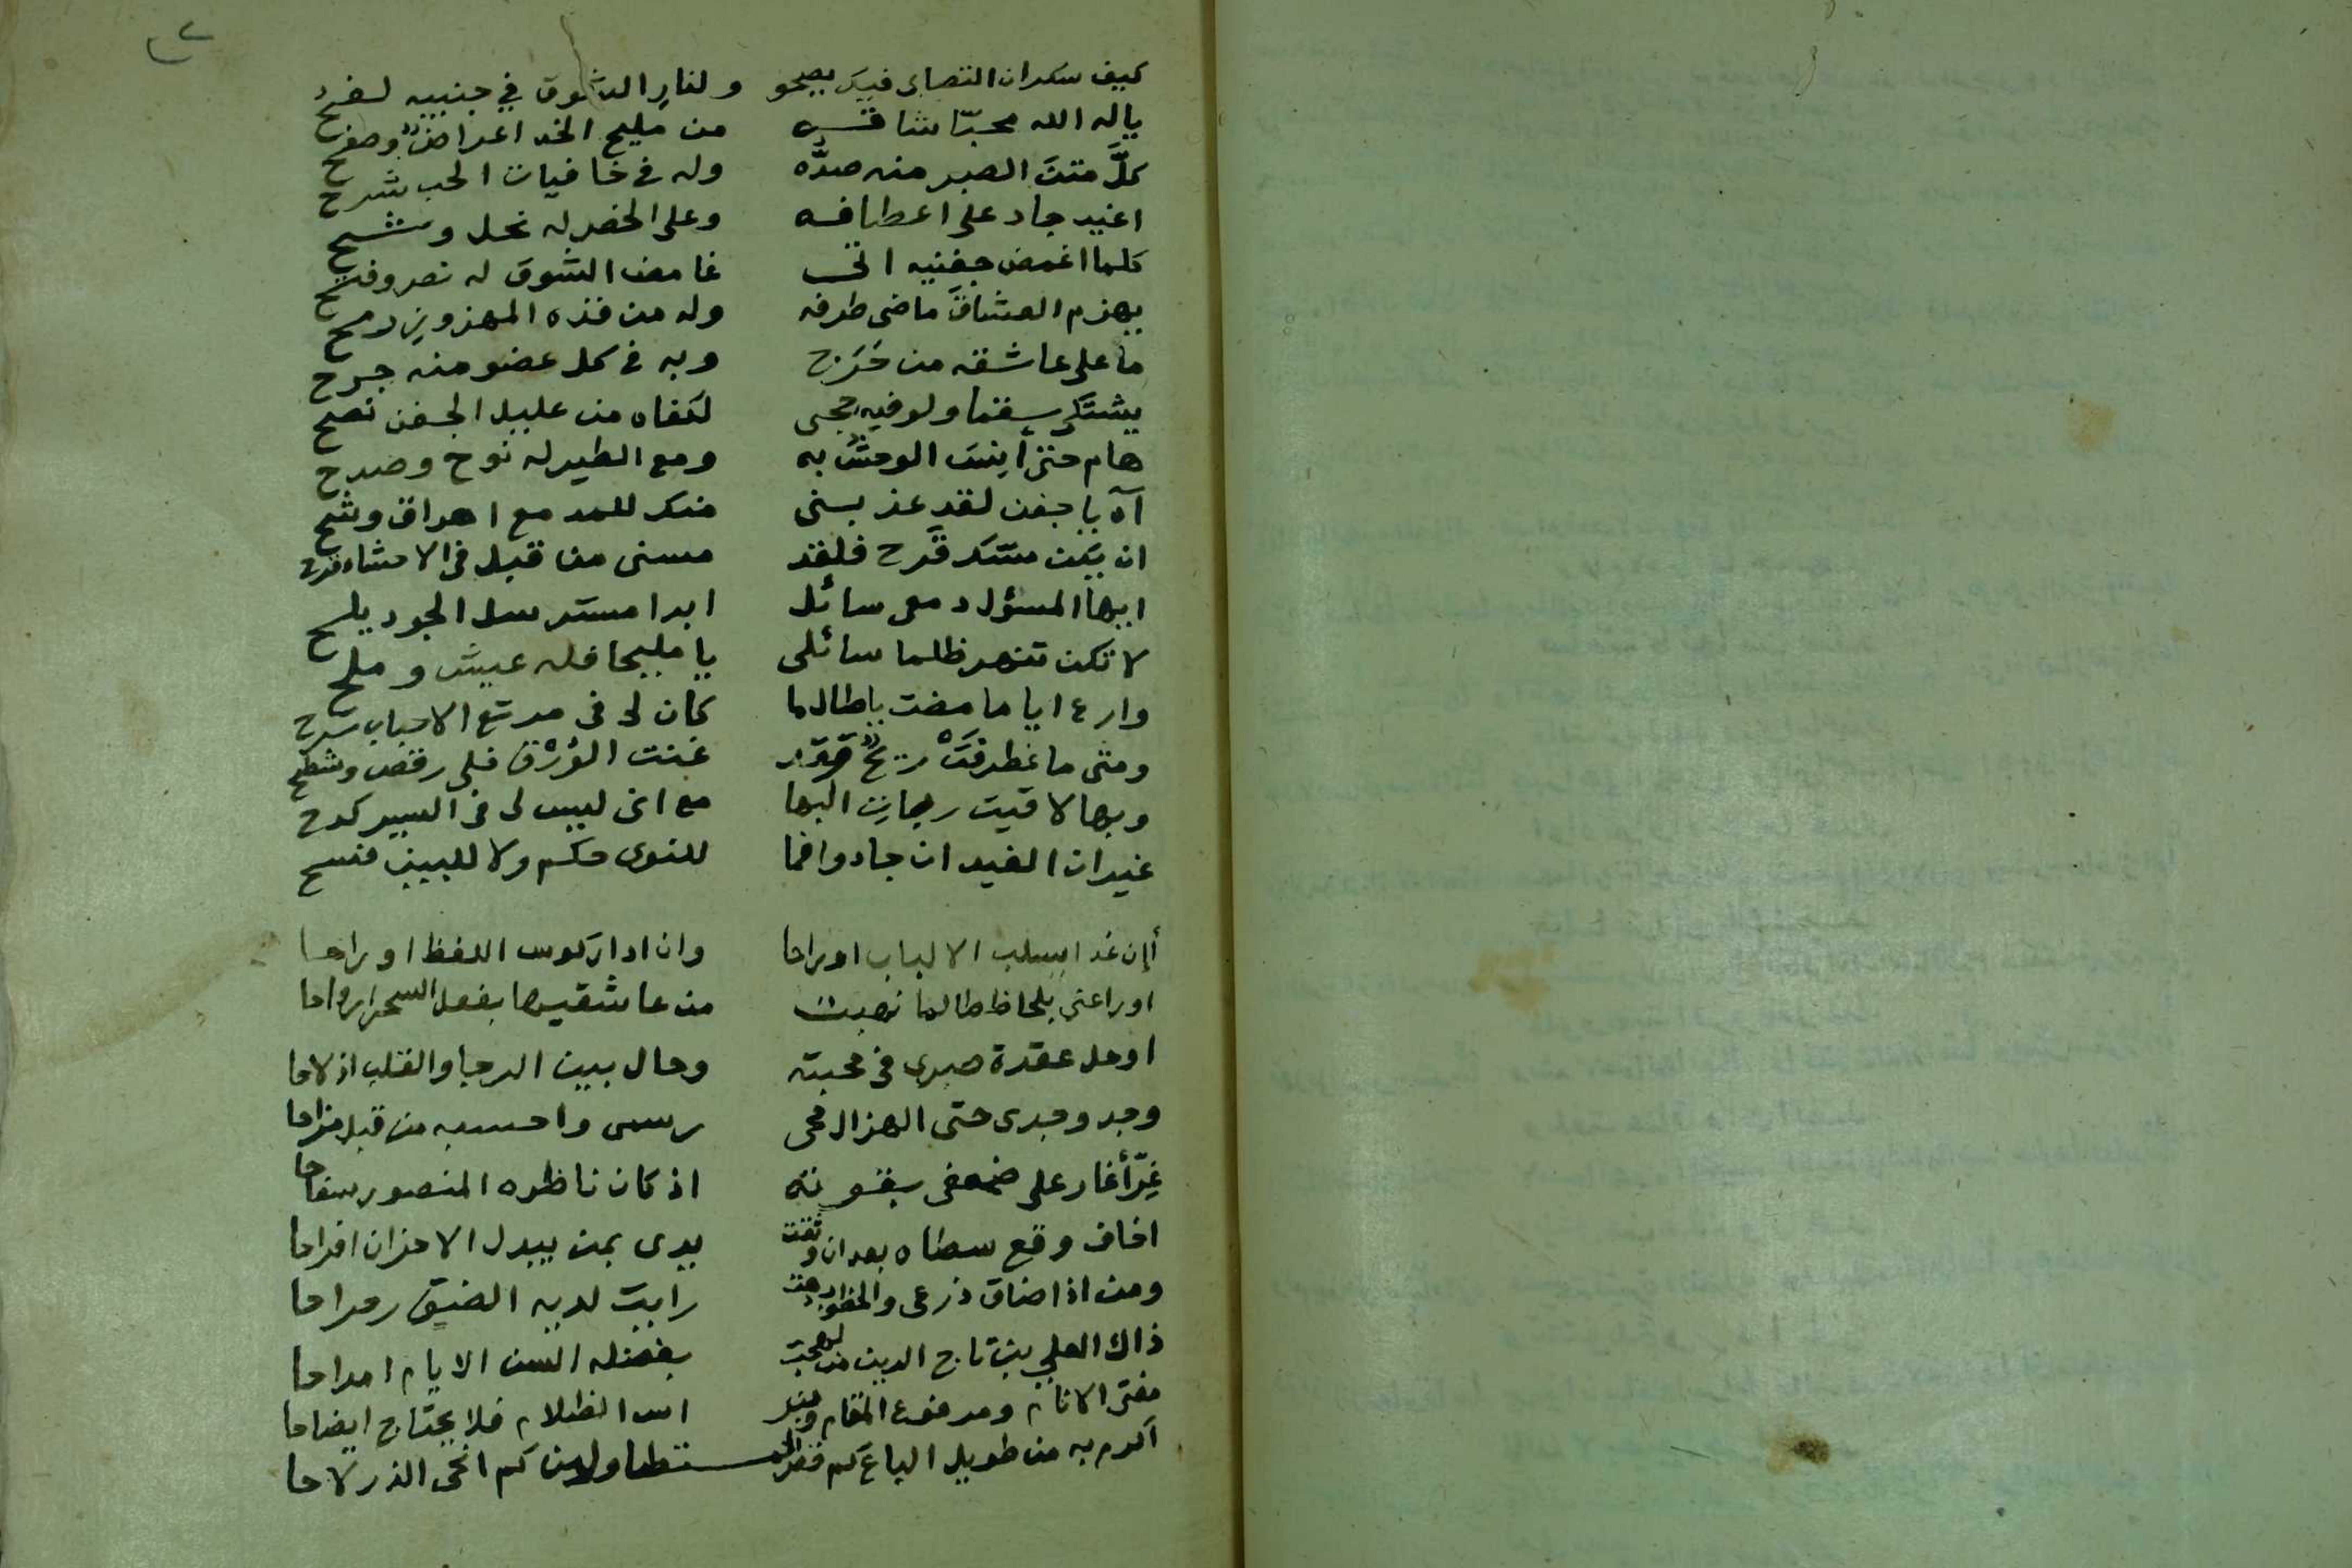 كيف سكران التصابى فيك يصحو ولنارِ الشوق في جنبيه لفح
ياله الله محبّا شاقه من مليح الخد اعراضٌ وصفح
كلَّ متنَ الصبر منه صدُّه وله فى خافيات الحب شرح
اغيد جاد على اعطافه وعلى الخصر له بخل وشح
كلما اغمض جفنيه اتى غامض الشوق له نصر وفتح
يهزم العشاقَ ماضى طرفه وله من قده المهزوز رمح
ما على عاشقه من حَرَج وبه فى كل عضو منه جرح
يشتكى سقما ولو فيه حجى لكفاه من عليل الجفن نصح
هام حتى أنِسَ الوحشُ به ومع الطير له نوح وصدح
آه يا جفن لقد عذبتنى منك للمدمع اهراق وشح
ان يكن مسّك قَرح فلقد مسنى من قبل فى الاحشاء قرح
ايها المسؤل دمعى سائل ابدا مسترسل الجود يلح
لا تكن تنهر ظلما سائلى يا مليحا فله عيش وملح
وارع اياما مضت ياطالما كان لى فى مرتع الاحباب سرح
ومتى ما غطرفَتْ ريحٌ غنت الوُرْق فلى رقص وشطح
وبها لاقيت ريحان البها مع انى ليس لى فى السير كدح
غير ان الغيد ان جادوا فما للنوى حكم ولا للبين فسح
أإن غدا يسلب الالباب اوراحا وان ادار كوس اللفظ اوراحا
اوراعنى بلحاظ طالما نهبت من عاشقيها بفعل السحر ارواحا
اوحل عقدة صبرى فى محبته وحال بين الرجا والقلب اذ لاحا
وجد وجدى حتى الهزال محى رسمى واحسبه من قبل مزاحا
غِرّ أغار على ضعفى بقوته اذ كان ناظره المنصور سفاحا
اخاف وقع سطاه بعد ان وثقت يدى بمن يبدل الاحزان افراحا
ومن اذا ضاق ذرعى والخطوب دهت رايت لديه الضيق رحراحا
ذاك العلي بن تاج الدين من لهجت بفضله السن الايام امداحا
مفتى الانام ومرفوع المقام الظلام فلا يحتاج ايضاحا
اكرم به من طويل الباع كم كم الذر لاحا